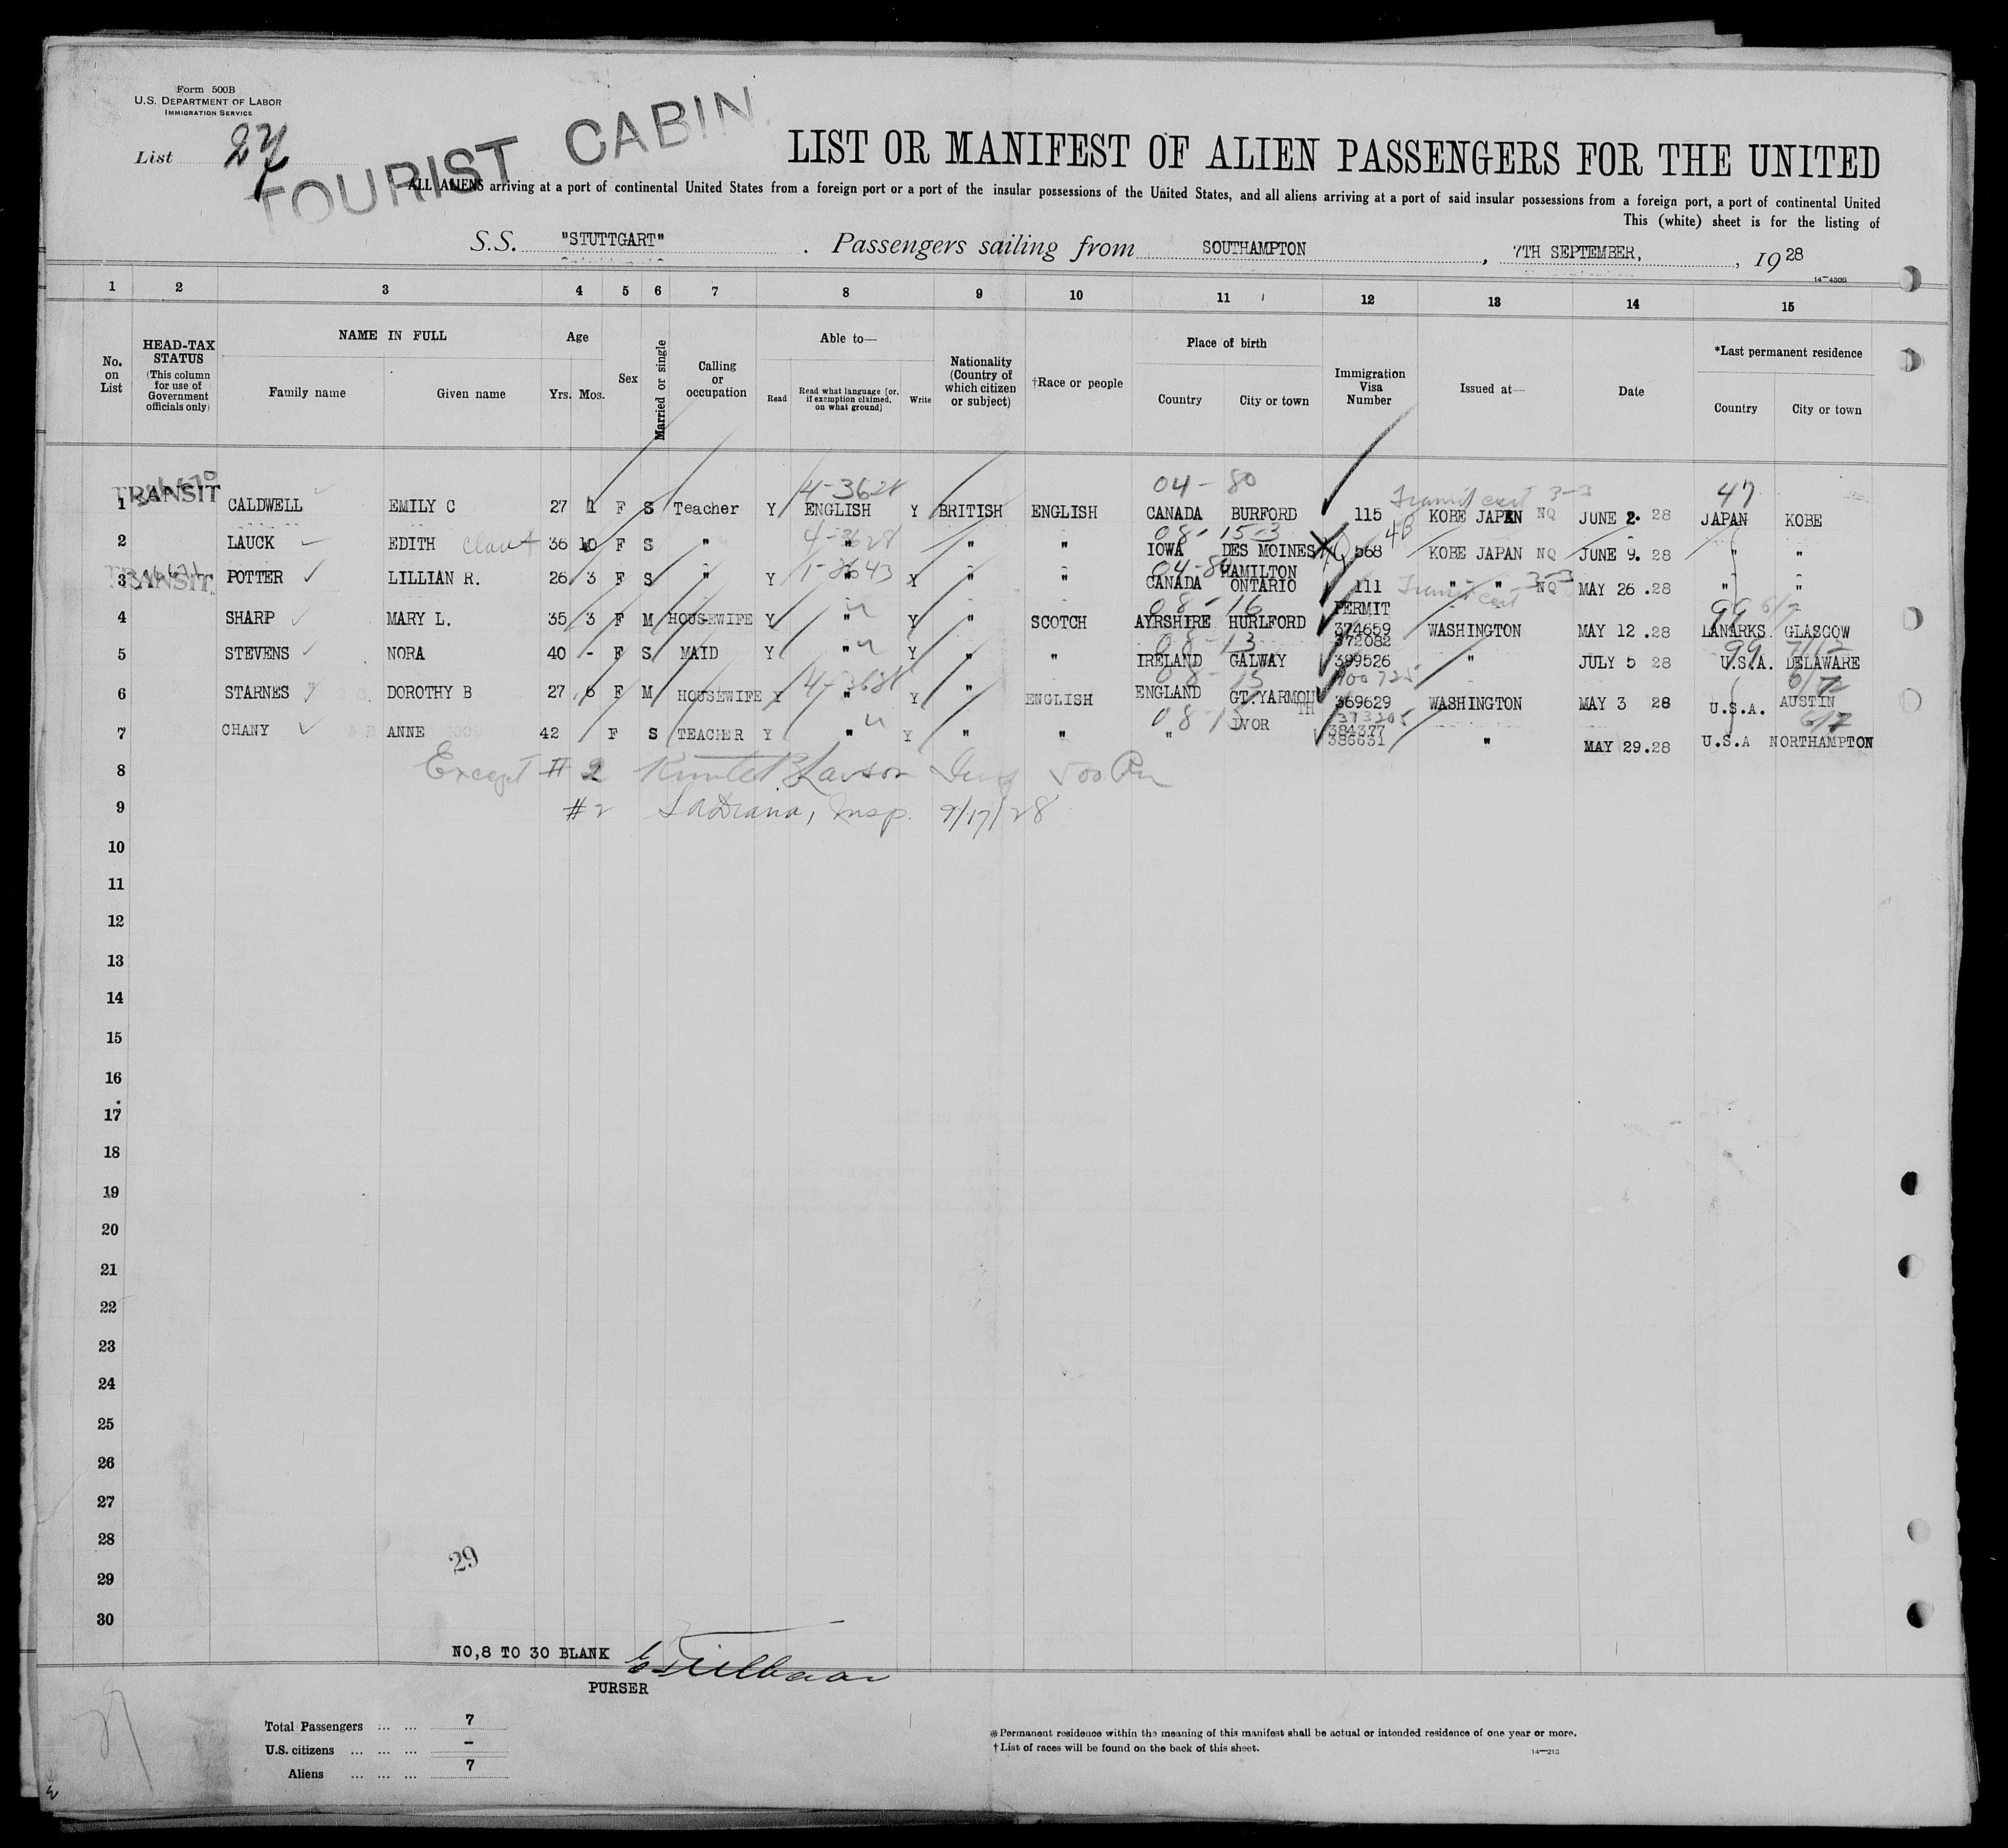 Form 500B
U.S. DEPARTMENT OF LABOR
IMMIGRATION SERVICE
List 27
TOURIST CABIN
LIST OR MANIFEST OF ALIEN PASSENGERS FOR THE UNITED
ALL ALIENS arriving at a port of continental United States from a foreign port or a port of the insular possessions of the United States, and all aliens arriving at a port of said insular possessions from a foreign port, a port of continental United
This (white) sheet is for the listing of
S.S. "STUTTGART" . Passengers sailing from SOUTHAMPTON , 7TH SEPTEMBER, , 1928
14—430B
1 2 3 4 5 6 7 8 9 10 11 12 13 14 15
No. on List
HEAD-TAX STATUS (This column for use of Government officials only)
NAME IN FULL
Family name Given name
Age
Yrs. Mos.
Sex
Married or single
Calling or occupation
Able to—
Read Read what language (or, if exemption claimed, on what ground) Write
Nationality (Country of which citizen or subject)
†Race or people
Place of birth
Country City or town
Immigration Visa Number
Issued at—
Date
*Last permanent residence
Country City or town
TRANSIT 4-3628 04-80 Transit cert 3-3 47
1 CALDWELL EMILY C 27 1 F S Teacher Y ENGLISH Y BRITISH ENGLISH CANADA BURFORD 115 KOBE JAPAN NQ JUNE 2. 28 JAPAN KOBE
4-3628 08-15-3 4B
2 LAUCK EDITH 36 10 F S " " " " IOWA DES MOINES 568 KOBE JAPAN NQ JUNE 9. 28 " "
TRANSIT 1-3643 04-80 Transit cert 3-3
3 POTTER LILLIAN R. 26 3 F S " Y " Y " " CANADA HAMILTON ONTARIO 111 " " NQ MAY 26.28 " "
08-16 PERMIT 99 6/2
4 SHARP MARY L. 35 3 F M HOUSEWIFE Y " Y " SCOTCH AYRSHIRE HURLFORD 374659 WASHINGTON MAY 12.28 LANARKS. GLASGOW
08-13 372082 99 7/12
5 STEVENS NORA 40 - F S MAID Y " Y " " IRELAND GALWAY 399526 " JULY 5 28 U.S.A. DELAWARE
4-3628 08-15 400725
6 STARNES DOROTHY B 27 6 F M HOUSEWIFE Y " Y " ENGLISH ENGLAND GT.YARMOUTH 369629 WASHINGTON MAY 3 28 U.S.A. AUSTIN
08-15 373205 384377 6/7
7 CHANY ANNE 42 F S TEACHER Y " Y " " " IVOR 386631 " MAY 29.28 U.S.A NORTHAMPTON
8 Except # 2
9 #2 Insp. 9/17/28
10
11
12
13
14
15
16
17
18
19
20
21
22
23
24
25
26
27
28
29
30
29
NO,8 TO 30 BLANK
PURSER
Total Passengers ... ... 7
U.S. citizens ... ... ... -
Aliens ... ... ... 7
*Permanent residence within the meaning of this manifest shall be actual or intended residence of one year or more.
†List of races will be found on the back of this sheet.
14—213